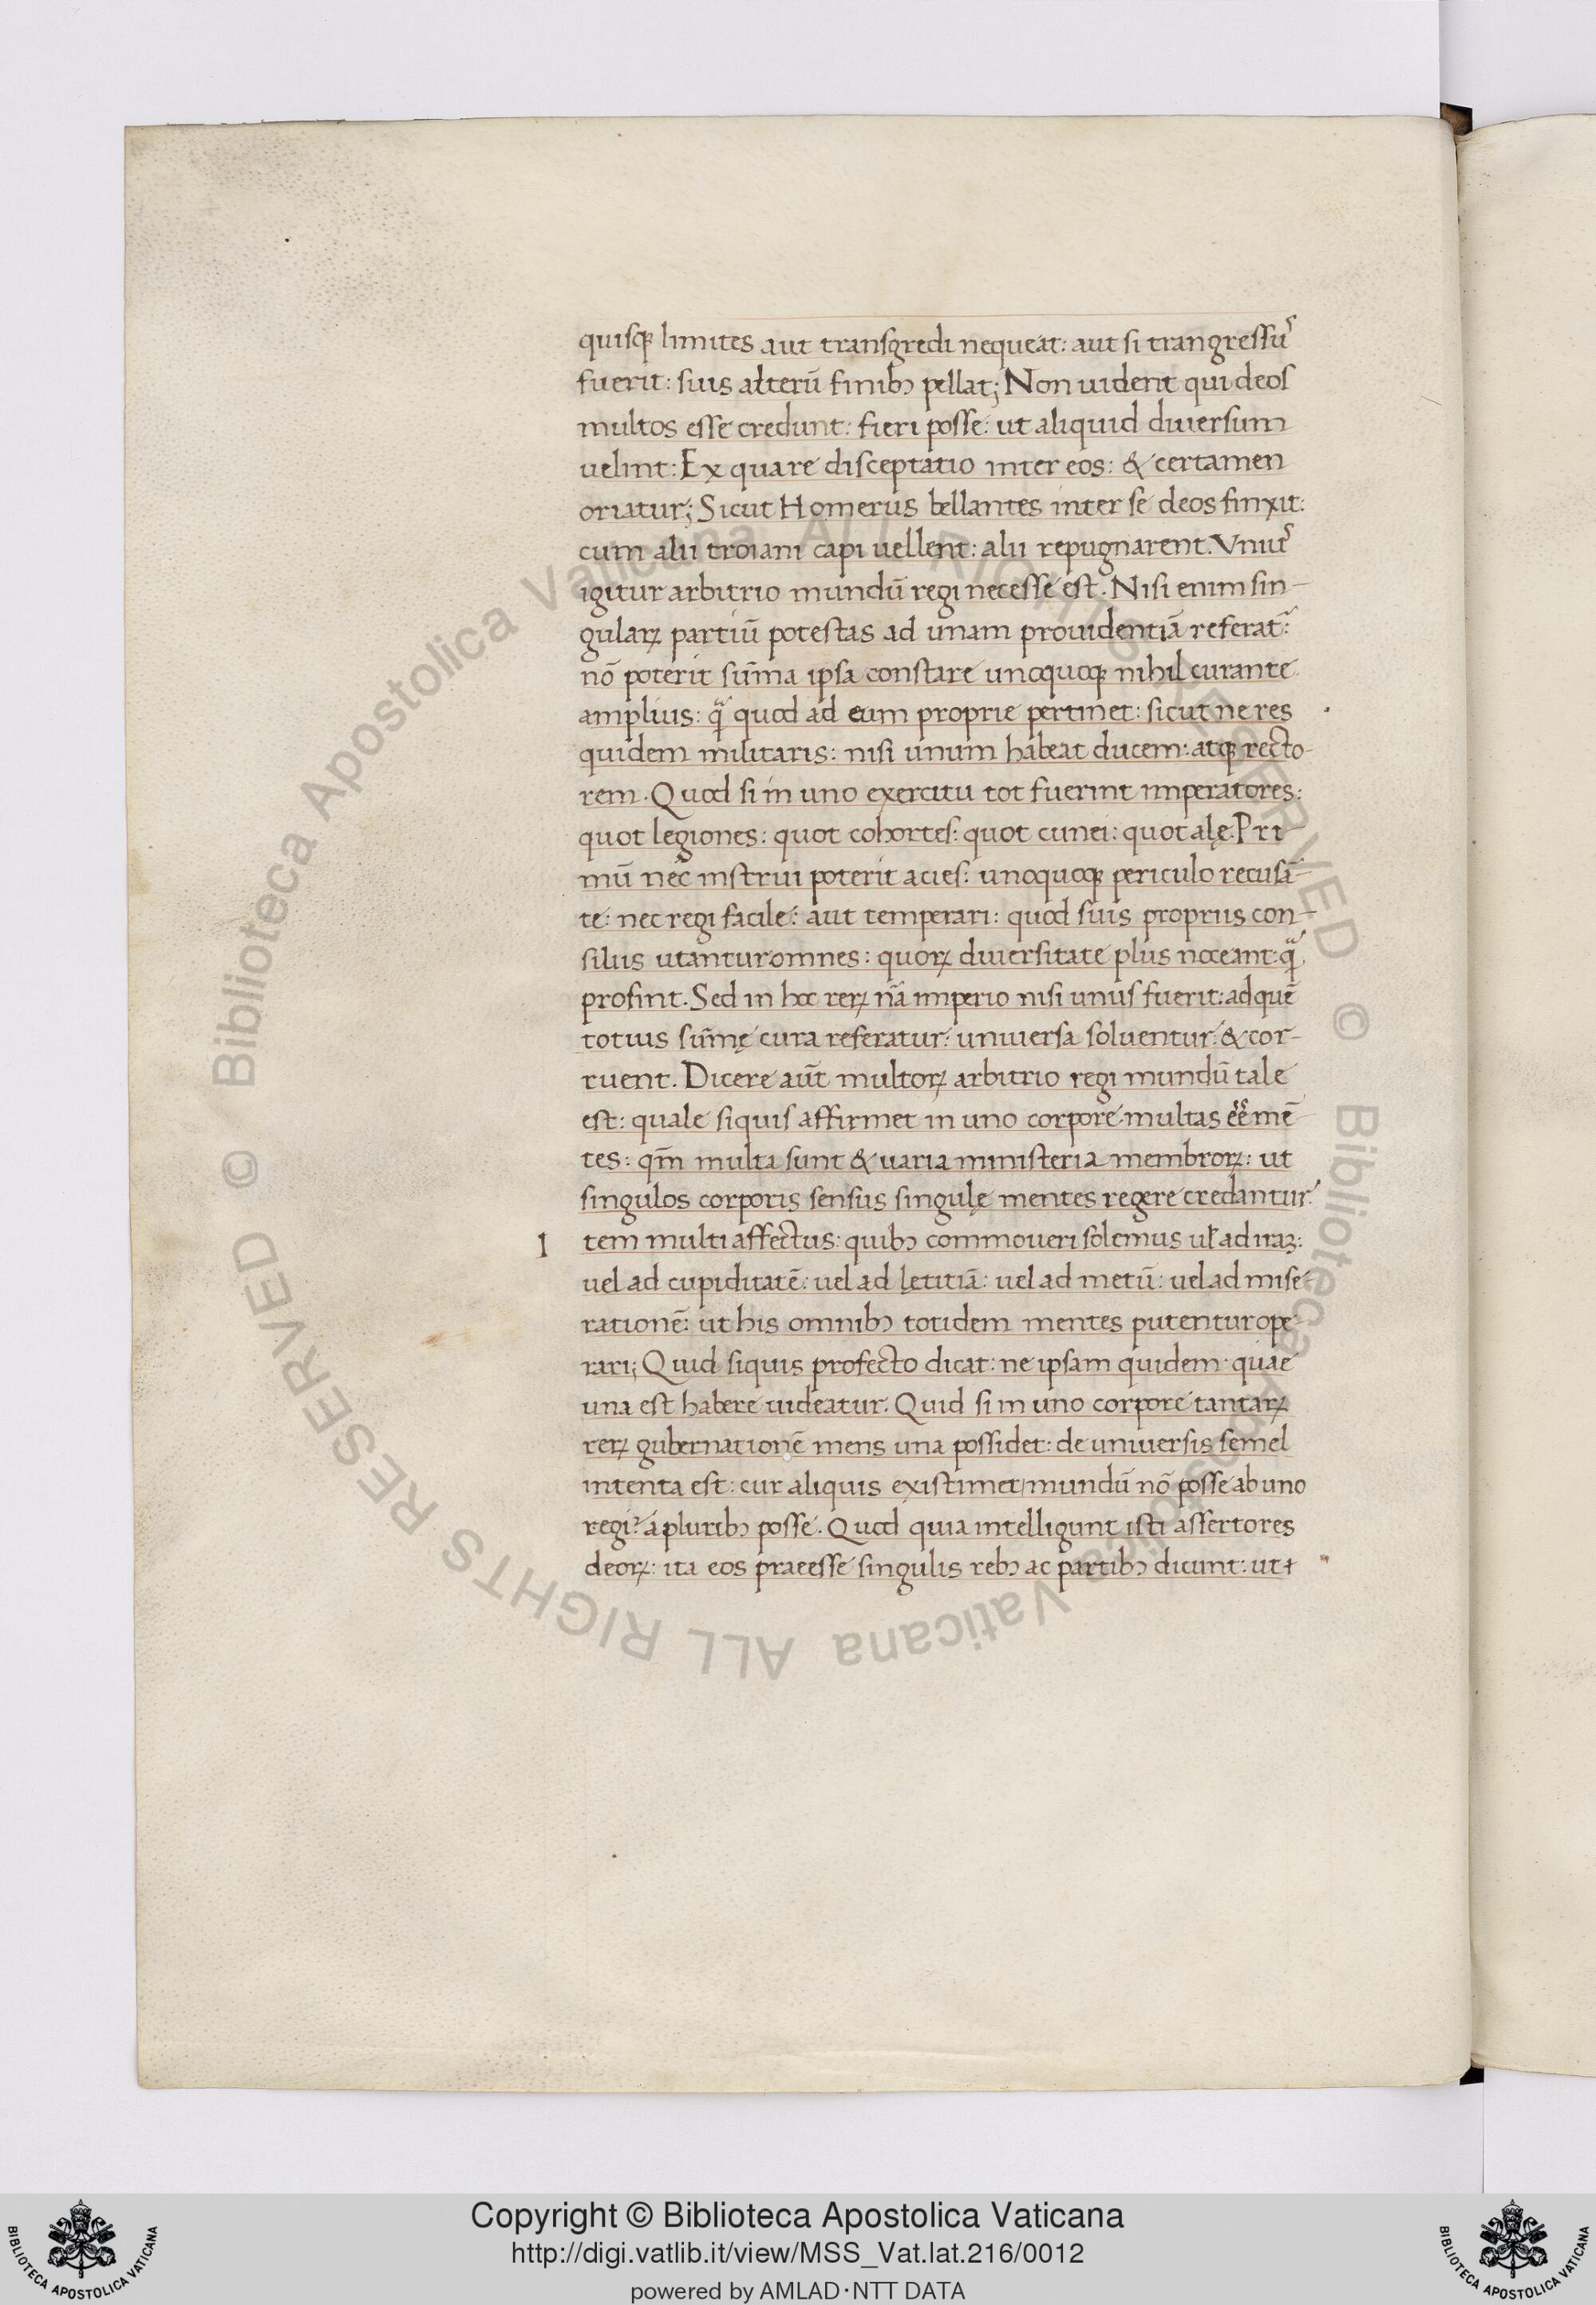 quisq; limites aut transgredi nequeat: aut si trangressuʾ
fuerit: suis alterū finibꝰ pellat; Non uident qui deos
multos esse credunt: fieri posse: ut aliquid diuersum
uelint: Ex quare disceptatio inter eos: & certamen
oriatur; Sicut Homerus bellantes inter se deos finxit:
cum alii troiani capi uellent: alii repugnarent. Vniuʾ
igitur arbitrio mundū regi necesse est. Nisi enim sin-
gularꝝ partiū potestas ad unam prouidentiā referat̃:
nō poterit sūma ipsa constare unoquoq; nihil curante
amplius: qᷓ quod ad eum proprie pertinet: sicut ne res
quidem militaris: nisi unum habeat ducem: atq; recto-
rem. Quod si in uno exercitu tot fuerint imperatores:
quot legiones: quot cohortes: quot cunei: quot alę. Pri-
mū nec instrui poterit acies: unoquoq; periculo recusā-
te: nec regi facile: aut temperari: quod suis propriis con-
siliis utantur omnes: quorꝝ diuersitate plus noceant: qᷓ
prosint. Sed in hoc rerꝝ nā imperio nisi unus fuerit: ad quē
totius sūmę cura referatur: uniuersa soluentur: & cor-
ruent. Dicere aūt multorꝝ arbitrio regi mundū tale
est: quale siquis affirmet in uno corpore multas ēē mē-
tes: qm̄ multa sunt & uaria ministeria membrorꝝ: ut
singulos corporis sensus singulę mentes regere credantur.
I tem multi affectus: quibꝰ commoueri solemus uł ad iraꝫ:
uel ad cupiditatē: uel ad lętitiā: uel ad metū: uel ad mise-
rationē: ut his omnibꝰ totidem mentes putentur ope-
rari; Quid siquis profecto dicat: ne ipsam quidem quae
una est habere uideatur. Quid si in uno corpore tantarꝝ
rerꝝ gubernationē mens una possidet: de uniuersis semel
intenta est: cur aliquis existimet mundū nō posse ab uno
regi? a pluribꝰ posse. Quod quia intelligunt isti assertores
deorꝝ: ita eos praeesse singulis rebꝰ ac partibꝰ dicunt: ut
© Biblioteca Apostolica Vaticana ALL RIGHTS RESERVED © Biblioteca Apostolica Vaticana ALL RIGHTS RESERVED
Copyright © Biblioteca Apostolica Vaticana
http://digi.vatlib.it/view/MSS_Vat.lat.216/0012
powered by AMLAD·NTT DATA
BIBLIOTECA APOSTOLICA VATICANA
BIBLIOTECA APOSTOLICA VATICANA